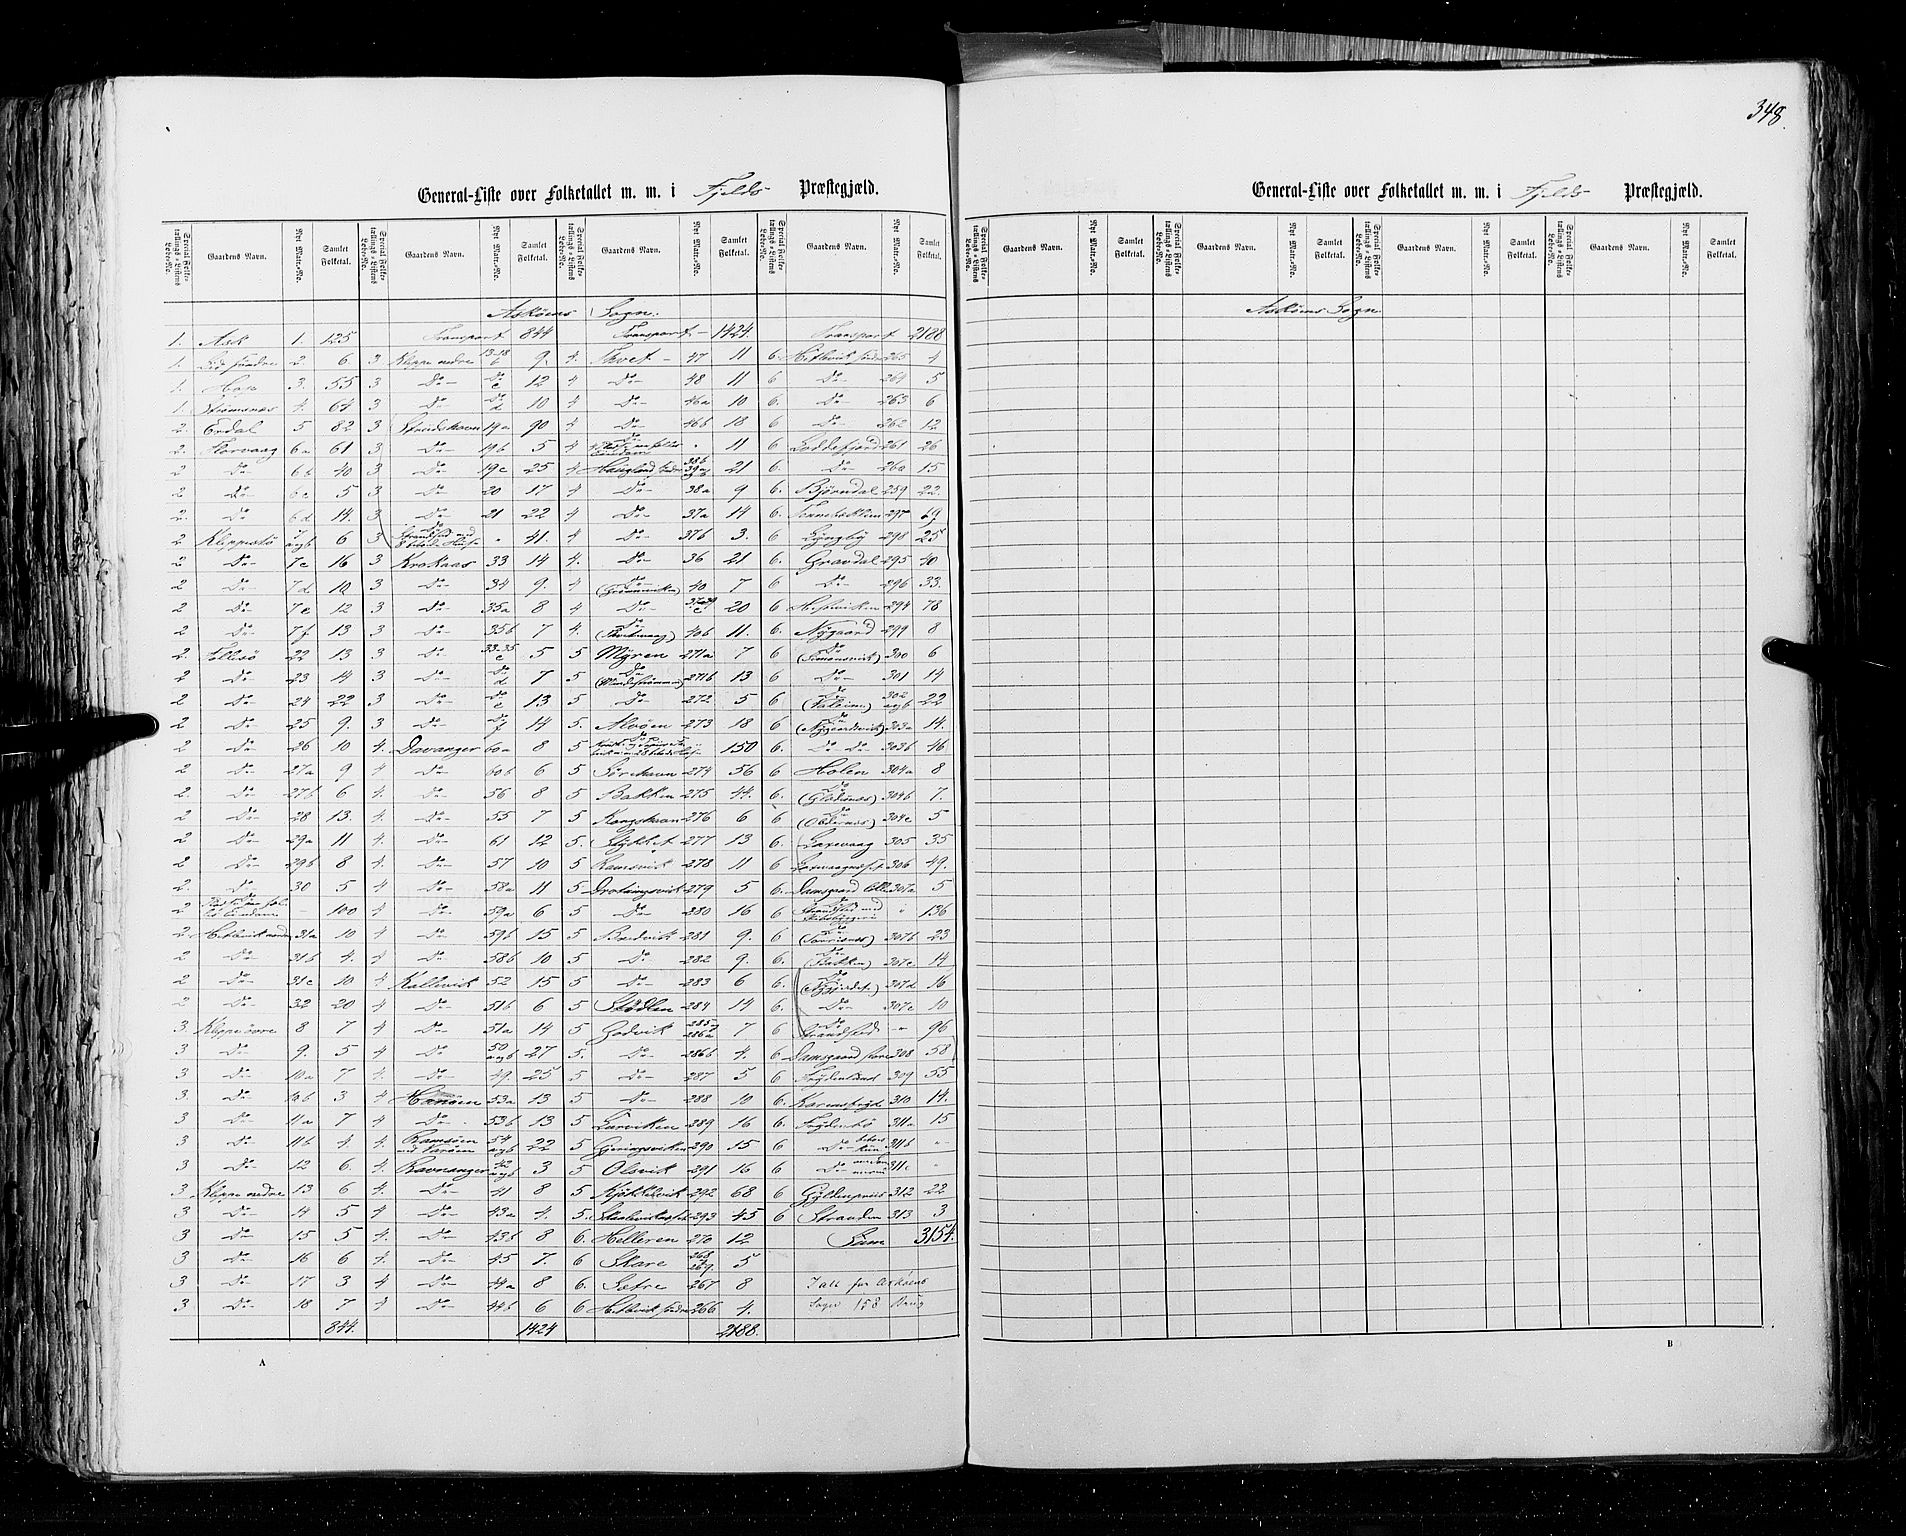 348.
General-Liste over Folketallet m. m. i Fjelds Præstegjæld.
Special Folketællings-Listens Løbe-No. Gaardens Navn. Nyt Matr.-No. Samlet Folketal. Special Folketællings-Listens Løbe-No. Gaardens Navn. Nyt Matr.-No. Samlet Folketal. Special Folketællings-Listens Løbe-No. Gaardens Navn. Nyt Matr.-No. Samlet Folketal. Special Folketællings-Listens Løbe-No. Gaardens Navn. Nyt Matr.-No. Samlet Folketal.
Askøens Sogn.
1. Ask 1. 125 Transport 844 Transport - 1424 Transport 2188
1. søndre 2 6 3 Kleppe nedre 13-18 b 9. 4. Tvet - 47 11 6. Hetlevik søndre 265 4
1. Hop 3. 55 3 Do- Do c 12 4 Do- 48 11 6 Do- 264 5
1. Strømsnæs 4. 64 3 Do- Do d 10 4 Do- 46a 10 6. Do- 263 6
2. Erdal 5 82 3 Strudshavn 19a 90 4 Do- 46b 18 6 Do- 262 12
2. Florvaag 6a 61 3 Do- 19b 5 4 Do 11 6 Loddefjord 261 26
2 Do- 6b 40 3 Do- 19c 25 4 Haugland søndre 38b 39a 21 6. Do- 260 15
2 Do- 6c 5 3 Do- 20 17 4 Do- 38a 9 6. Bjørndal 259 22.
2. Do 6d 14. 3 Do- 21 22 4 Do- 37a 14 6. 297 69
2 Kleppestø 7 a&b 6 3 Do Strandsted med 8 Huse " 41. 4 Do- 37b 3. 6 Lyngbø 298 25
2 Do- 7c 16 3 Krokaas 33 14 4. Do- 36 21 6. Gravdal 295 40
2 Do- 7d 10 3 Do- 34 9. 4 Do 40 7 6 Do- 296 33.
2 Do- 7e 12 3 Do- 35a 8 4 Do- 20 6 Hesviken 294 78
2 Do- 7f 13 3 Do- 35b 7 4. Do 40b 11. 6. Nygaard 299 8
2. Follesø 22 13 3 Do- 33-35 c 5 5 Myren 271a 7 6 Do (Simonsvik) 300 6
2 Do- 23 14 3 Do- Do d 7 5 Do 271b 13 6 Do- 301 14
2 Do- 24 22 3 Do- Do e 13 5 Do- 272 5 6 Do 302 a&b 22
2 Do- 25 9. 3 Do- Do f 14 5. Alvøen 273 18 6 Do (Nygaardsvik) 303a 14.
2 Do- 26 10 4. Davanger 60a 8 5 Do 150 6. Do- Do- 303b 46
2 Do- 27a 9 4 Do- 60b 6 5 Sørehavn 274 56 6 Holen 304a 8
2. Do- 27b 6 4. Do- 56 8 5 Bakken 275 44. 6. Do 304b 7.
2 Do- 28 13. 4. Do- 55 7 5 Kongshavn 276 6 6 Do 304c 5
2 Do- 29a 11 4. Do- 61 12 5. Stykket 277 13 6. Laxevaag 305 35
2 Do- 29b 8 4 Do- 57 10 5 Ramsvik 278 11 6 306 49.
2. Do- 30 5 4 Do- 58a 11 5. Drotningsvik 279 5 6. Damsgaard lille 307a 5
2 - 100 4 Do- 59a 6 5 Do- 280 16 6 Do Strandsted med " 136
2. Hetlevik nordre 31a 10 4 Do- 59b 15 5 Bredvik 281 9. 6 Do 307b 23
2 Do- 31b 4. 4 Do- 58b 10 5 Do- 282 9. 6. Do (Bakken) 307c 14
2 Do- 31c 10 4 Kollevik 52 15 5 Do- 283 6 6. Do 307d 16
2 Do- 32 20 4 Do- 51b 6 5 Stødlen 284 14 6 Do- 307e 10
3. Kleppe øvre 8 7 4 Do- 51a 14 5 Godvik 285 286a 7 6 Do Strandsted " 96
3 Do- 9. 5 4 Do- 50 a&b 27 5. Do- 286b 4. 6 Damsgaard store 308 58
3 Do- 10a 7 4. Do- 49. 25 5 Do- 287 5 6 Frydenlund 309 55
3 Do- 10b 3 4 Hanøen 53a 13 5 Do- 288 10 6. 310 14.
3 Do- 11a 7 4 Do- 53b 13 5 Lurviken 289 16 6 Frydenbø 311a 15
3 Do- 11b 4 4. Ramsøen med 54 a&b 22 5 Gjeringsviken 290 15 6 Do- 311b "
3 Do- 12 6. 4. Ravnanger 42 a&b 3 5 Olsvik 291 16 6 Do 311c "
3 Kleppe nedre 13 6 4. Do- 41 8 5 Kjøkkelvik 292 68 6 Gyldenpris 312 22
3 Do- 14 5 4 Do- 43a 4. 5. 293 45 6 Stranden 313 3
3 Do- 15 5 4. Do- 43b 8 6. Helleren 270 12 Sum 3154.
3 Do- 16 6 4. Do- 45 7. 6 Skare 268 269. 5
3 Do- 17 3 4 Do- 44a 8 6. Sætre 267 8 I alt for Askøens
3 Do- 18 7 4 Do- 44b 6 6 Hetlevik søndre 266 4. Sogn 158 Brug
844. 1424 2188.
A
General-Liste over Folketallet m. m. i Fjelds Præstegjæld.
Special Folketællings-Listens Løbe-No. Gaardens Navn. Nyt Matr.-No. Samlet Folketal. Special Folketællings-Listens Løbe-No. Gaardens Navn. Nyt Matr.-No. Samlet Folketal. Special Folketællings-Listens Løbe-No. Gaardens Navn. Nyt Matr.-No. Samlet Folketal. Special Folketællings-Listens Løbe-No. Gaardens Navn. Nyt Matr.-No. Samlet Folketal.
Askøens Sogn.
B